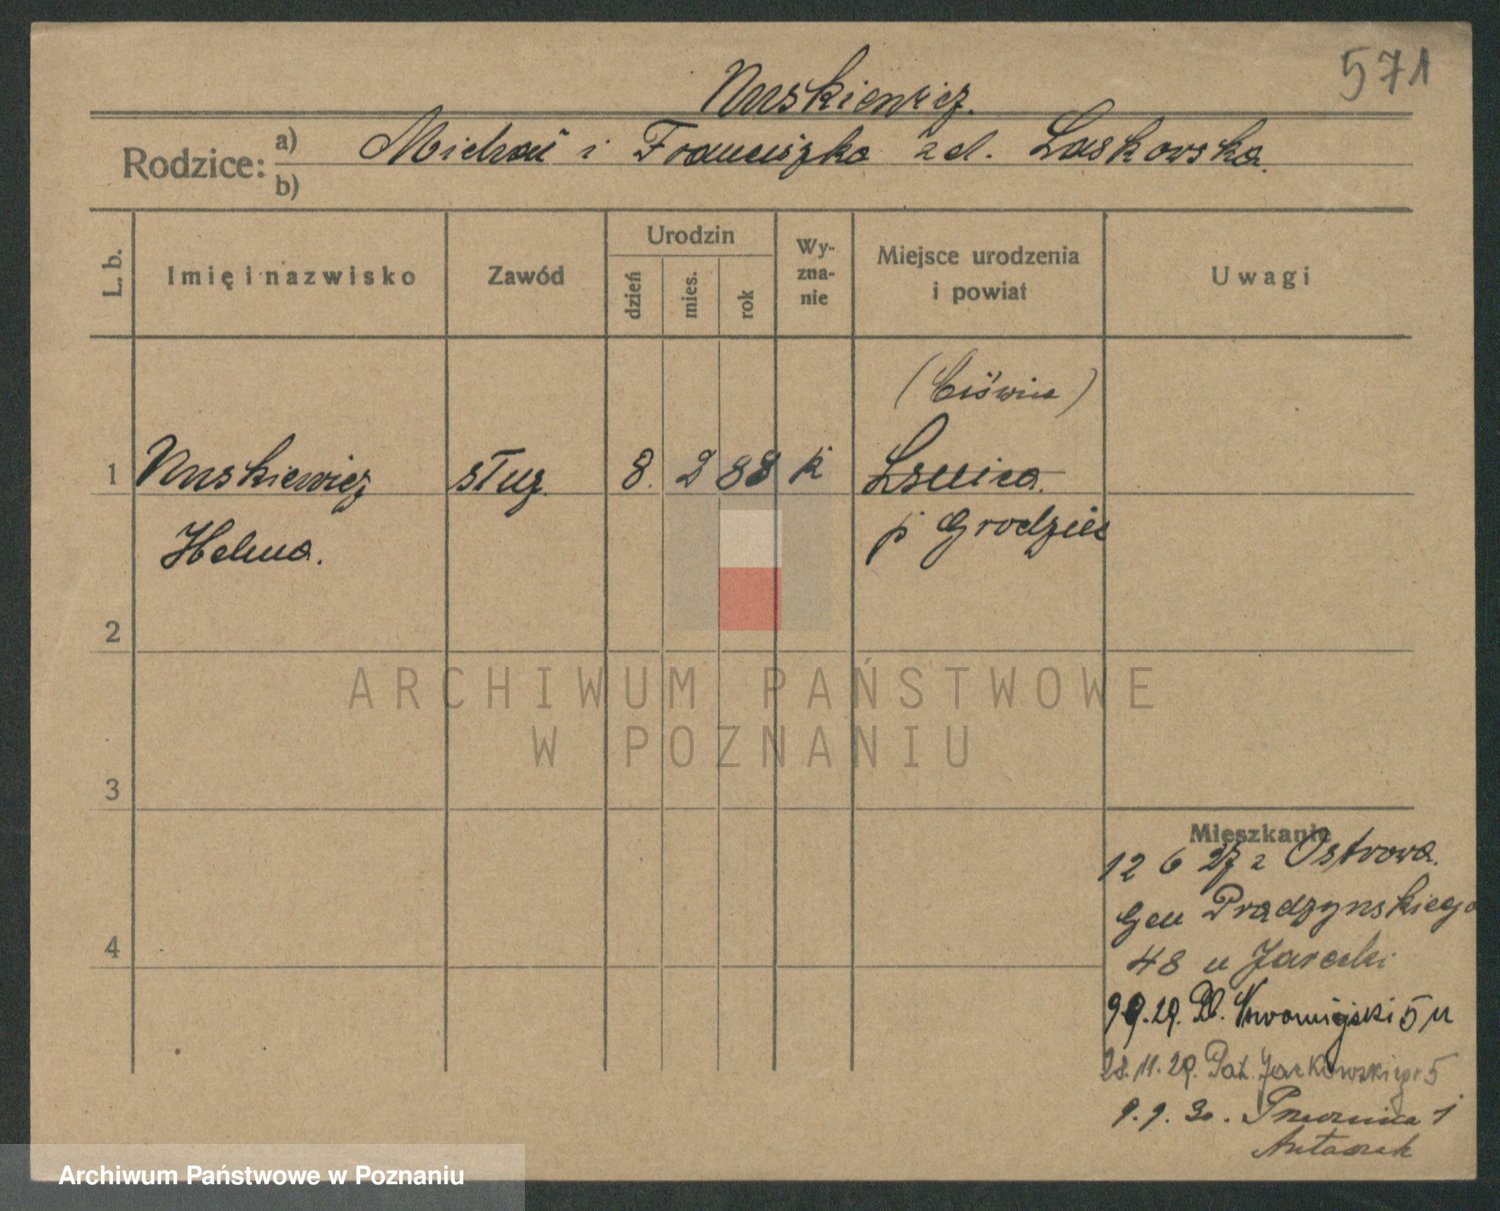 571
Nuskiewicz.
Rodzice: a) Michał i Franciszka zd. Laskowska.
b)
L. b.
Imię i nazwisko
Zawód
Urodzin
dzień
mies.
rok
Wy-
zna-
nie
Miejsce urodzenia
i powiat
Uwagi
(Ciświca)
1 Nuskiewicz służ. 8. 2 88 k
Helena.
p Grodziec
2
3
4
Mieszkanie
12 6 27 z Ostrowa.
Gen Prądzynskiego
48 u Jarecki
9.9.29. Pl. Nowomiejski 5 u
28.11.29. Jackowskiego 5
9.9.30. 1
Antczak
ARCHIWUM PAŃSTWOWE
W POZNANIU
Archiwum Państwowe w Poznaniu